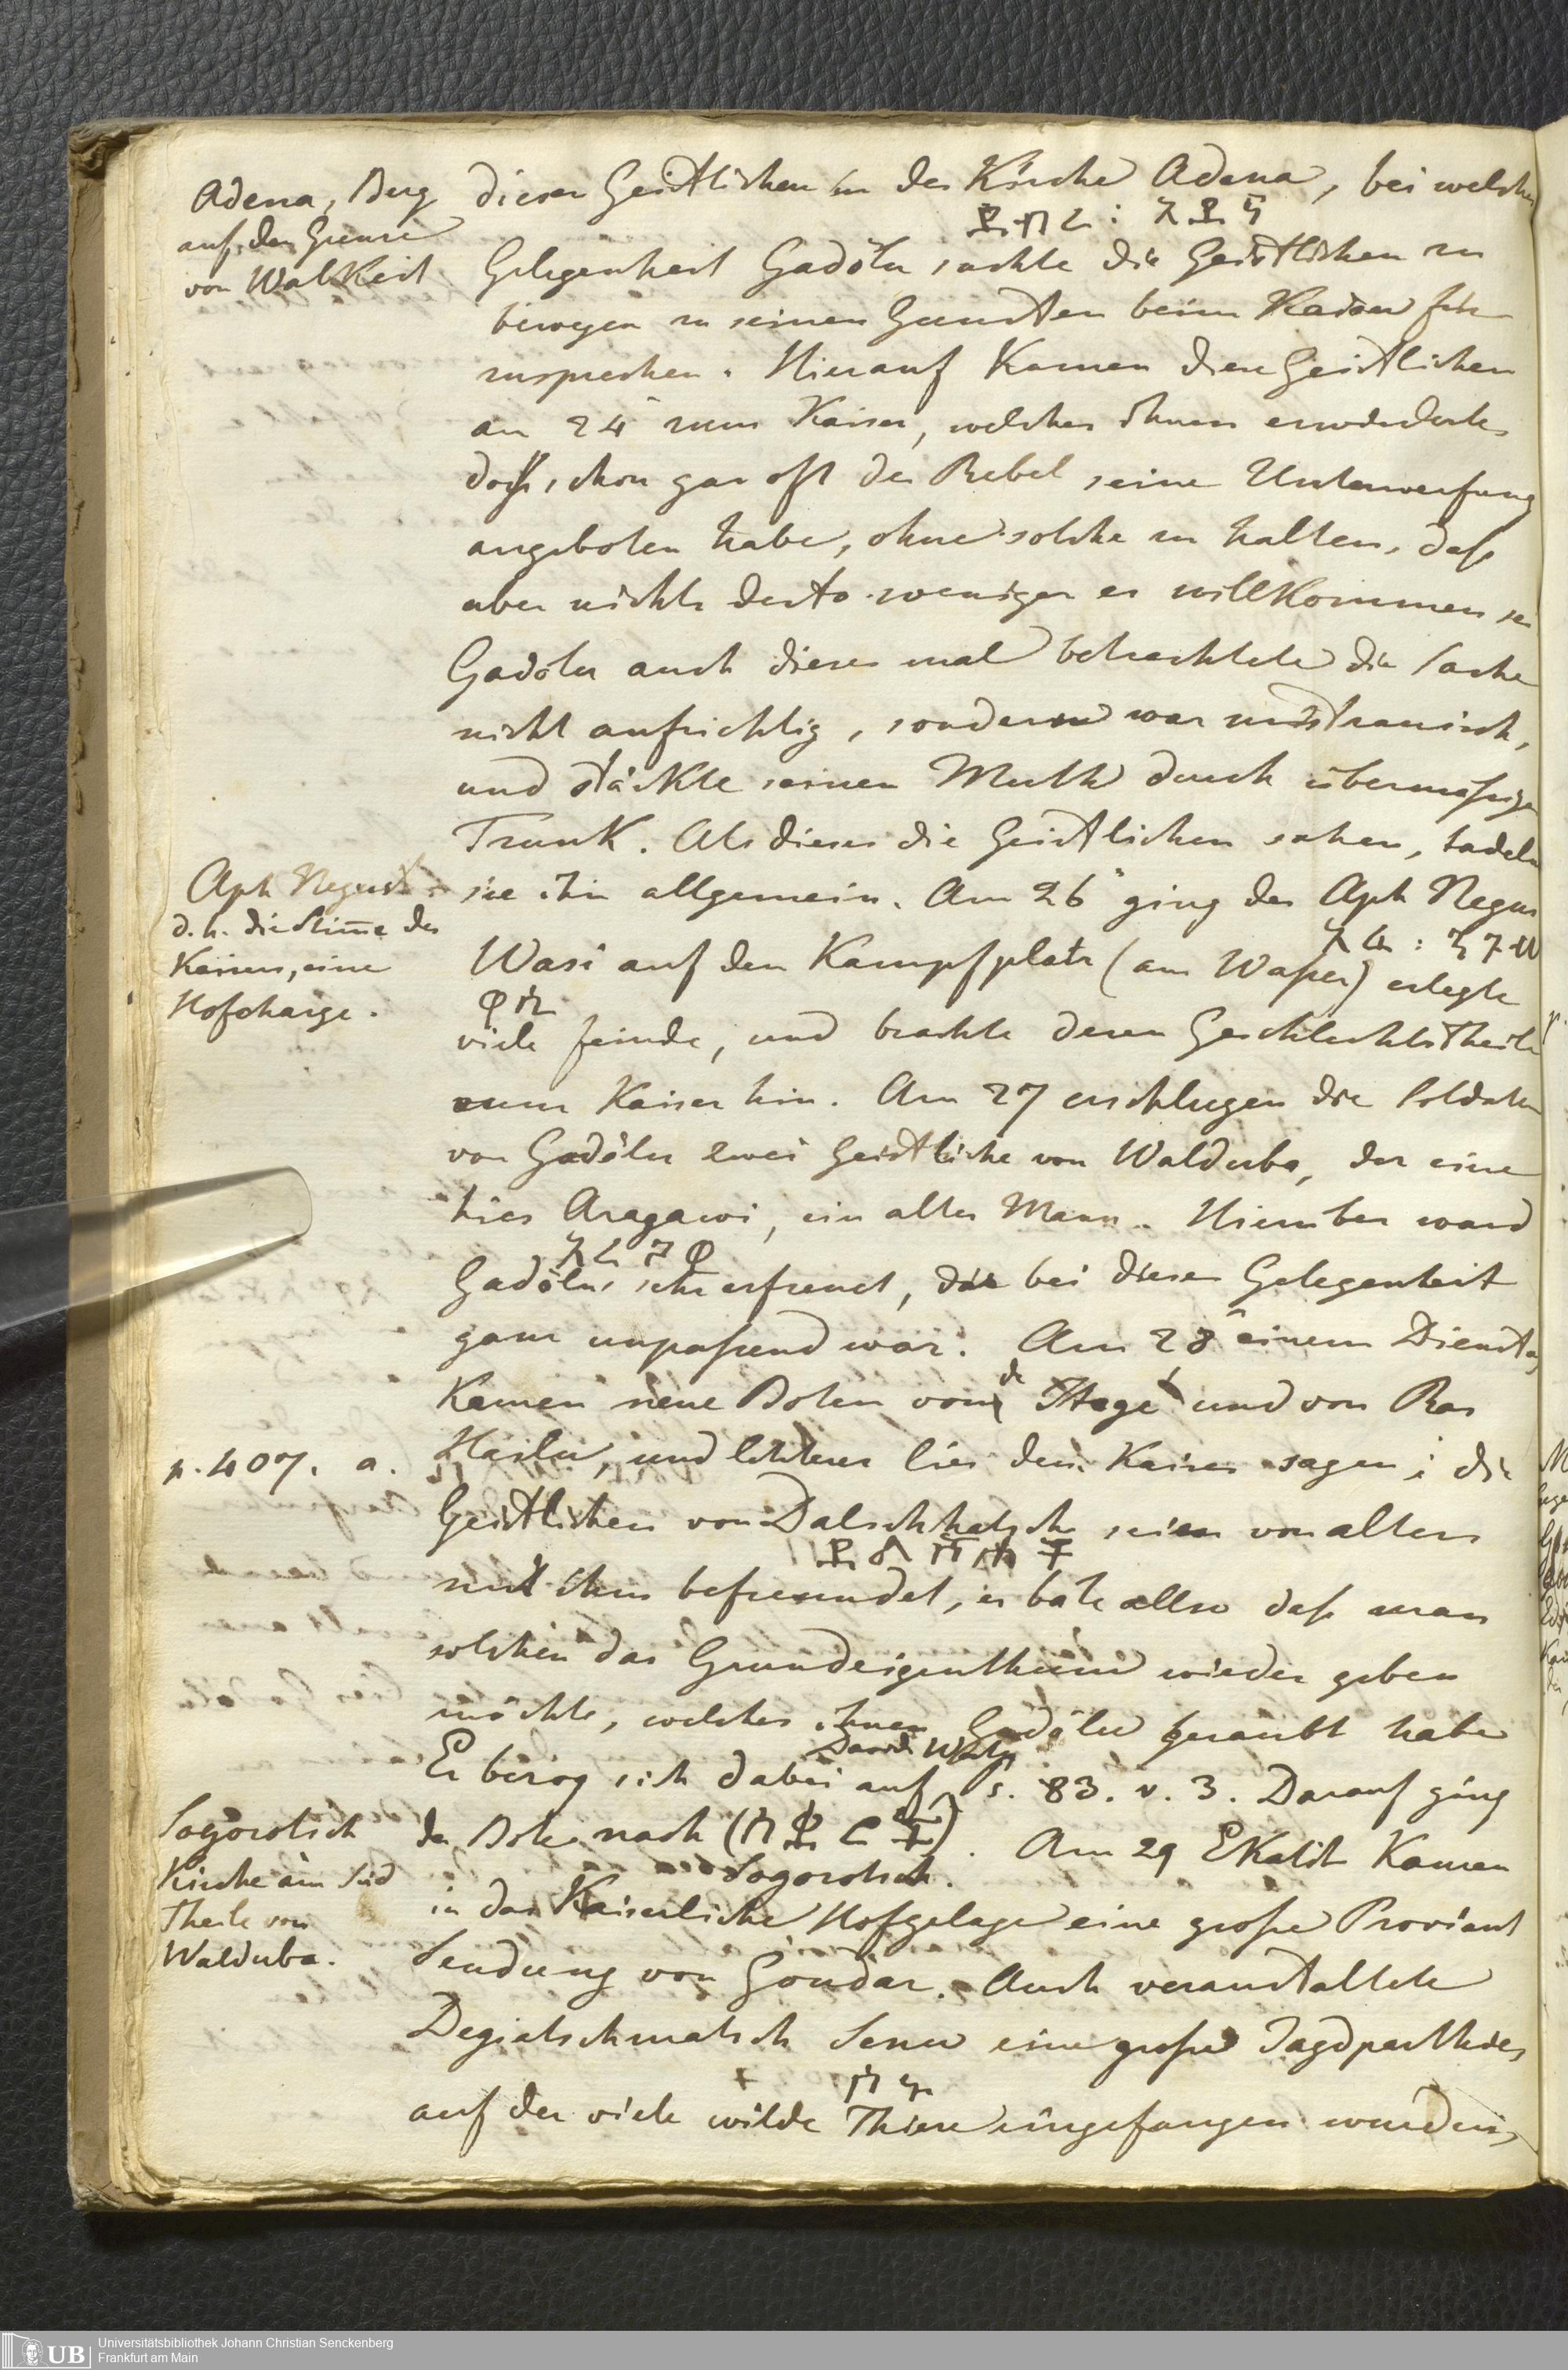 Adena, Berg
auf der Grenze
von Walkeit
dieser Geistlichen in der Kirche Adena, bei welcher
ደብረ: አደና
Gelegenheit Gadölu suchte die Geistlichen zu
bewegen zu seinen Gunsten beim Kaiser für
zusprechen. Hierauf kamen diese Geistlichen
am 24ⁿ zum Kaiser, welcher ihnen erwiederte,
daß schon gar oft der Rebel seine Unterwerfung
angeboten habe, ohne solche zu halten, daß
aber nichts desto weniger er willkommen sei
Gadölu auch dieses mal betrachtete die Sache
nicht aufrichtig, sondern war mistrauisch,
und stärkte seinen Muth durch übermäßigen
Trunk. Als dieses die Geistlichen sahen, tadeln
Aph Negust
d. h. die Stim̄e des
Kaisers, eine
Hofcharge.
sie ihn allgemein. Am 26ⁿ ging der Aph Negus
አፈ: ንጉሠ
Wasi auf den Kampfplatz (am Waßer) erlegte
ዋሲ
viele Feinde, und brachte deren Geschlechtstheile
zum Kaiser hin. Am 27 erschlugen die Soldaten
von Gadölu zwei Geistliche von Walduba, der eine
hies Aragawi, ein alter Mann. Hierüber ward
አረጋዊ
Gadölu, sehr erfreuet, das bei dieser Gelegenheit
ganz unpaßend war. Am 28ⁿ einem Dienstag
kamen neue Boten von de Itege und von Ras
p. 407. a.
Hailu, und letzterer lies dem Kaiser sagen; die
Geistlichen von Dalschhatsch seien von alters
ደልሽሐች
mit ihm befreundet, er bäte allso daß man
solchen das Grundeigenthum wieder geben
möchte, welches ihnen Gadölu geraubt habe
Er bezog sich dabei auf Davids Worte Ps. 83. v. 3. Darauf ging
Sogorotsch
Kirche am Süd
Theile von
Walduba.
der Bote nach (ሰቋሮች). Am 29 Ekatit kamen
Sogorotsch.
in das Kaiserliche Hofgelage eine große Proviant
Sendung von Gondar. Auch veranstaltete
Degiatschmatsch Senu eine große Jagdparthie,
ሰኑ
auf der viele wilde Thiere eingefangen wurden,
Universitätsbibliothek Johann Christian Senckenberg
Frankfurt am Main
UB